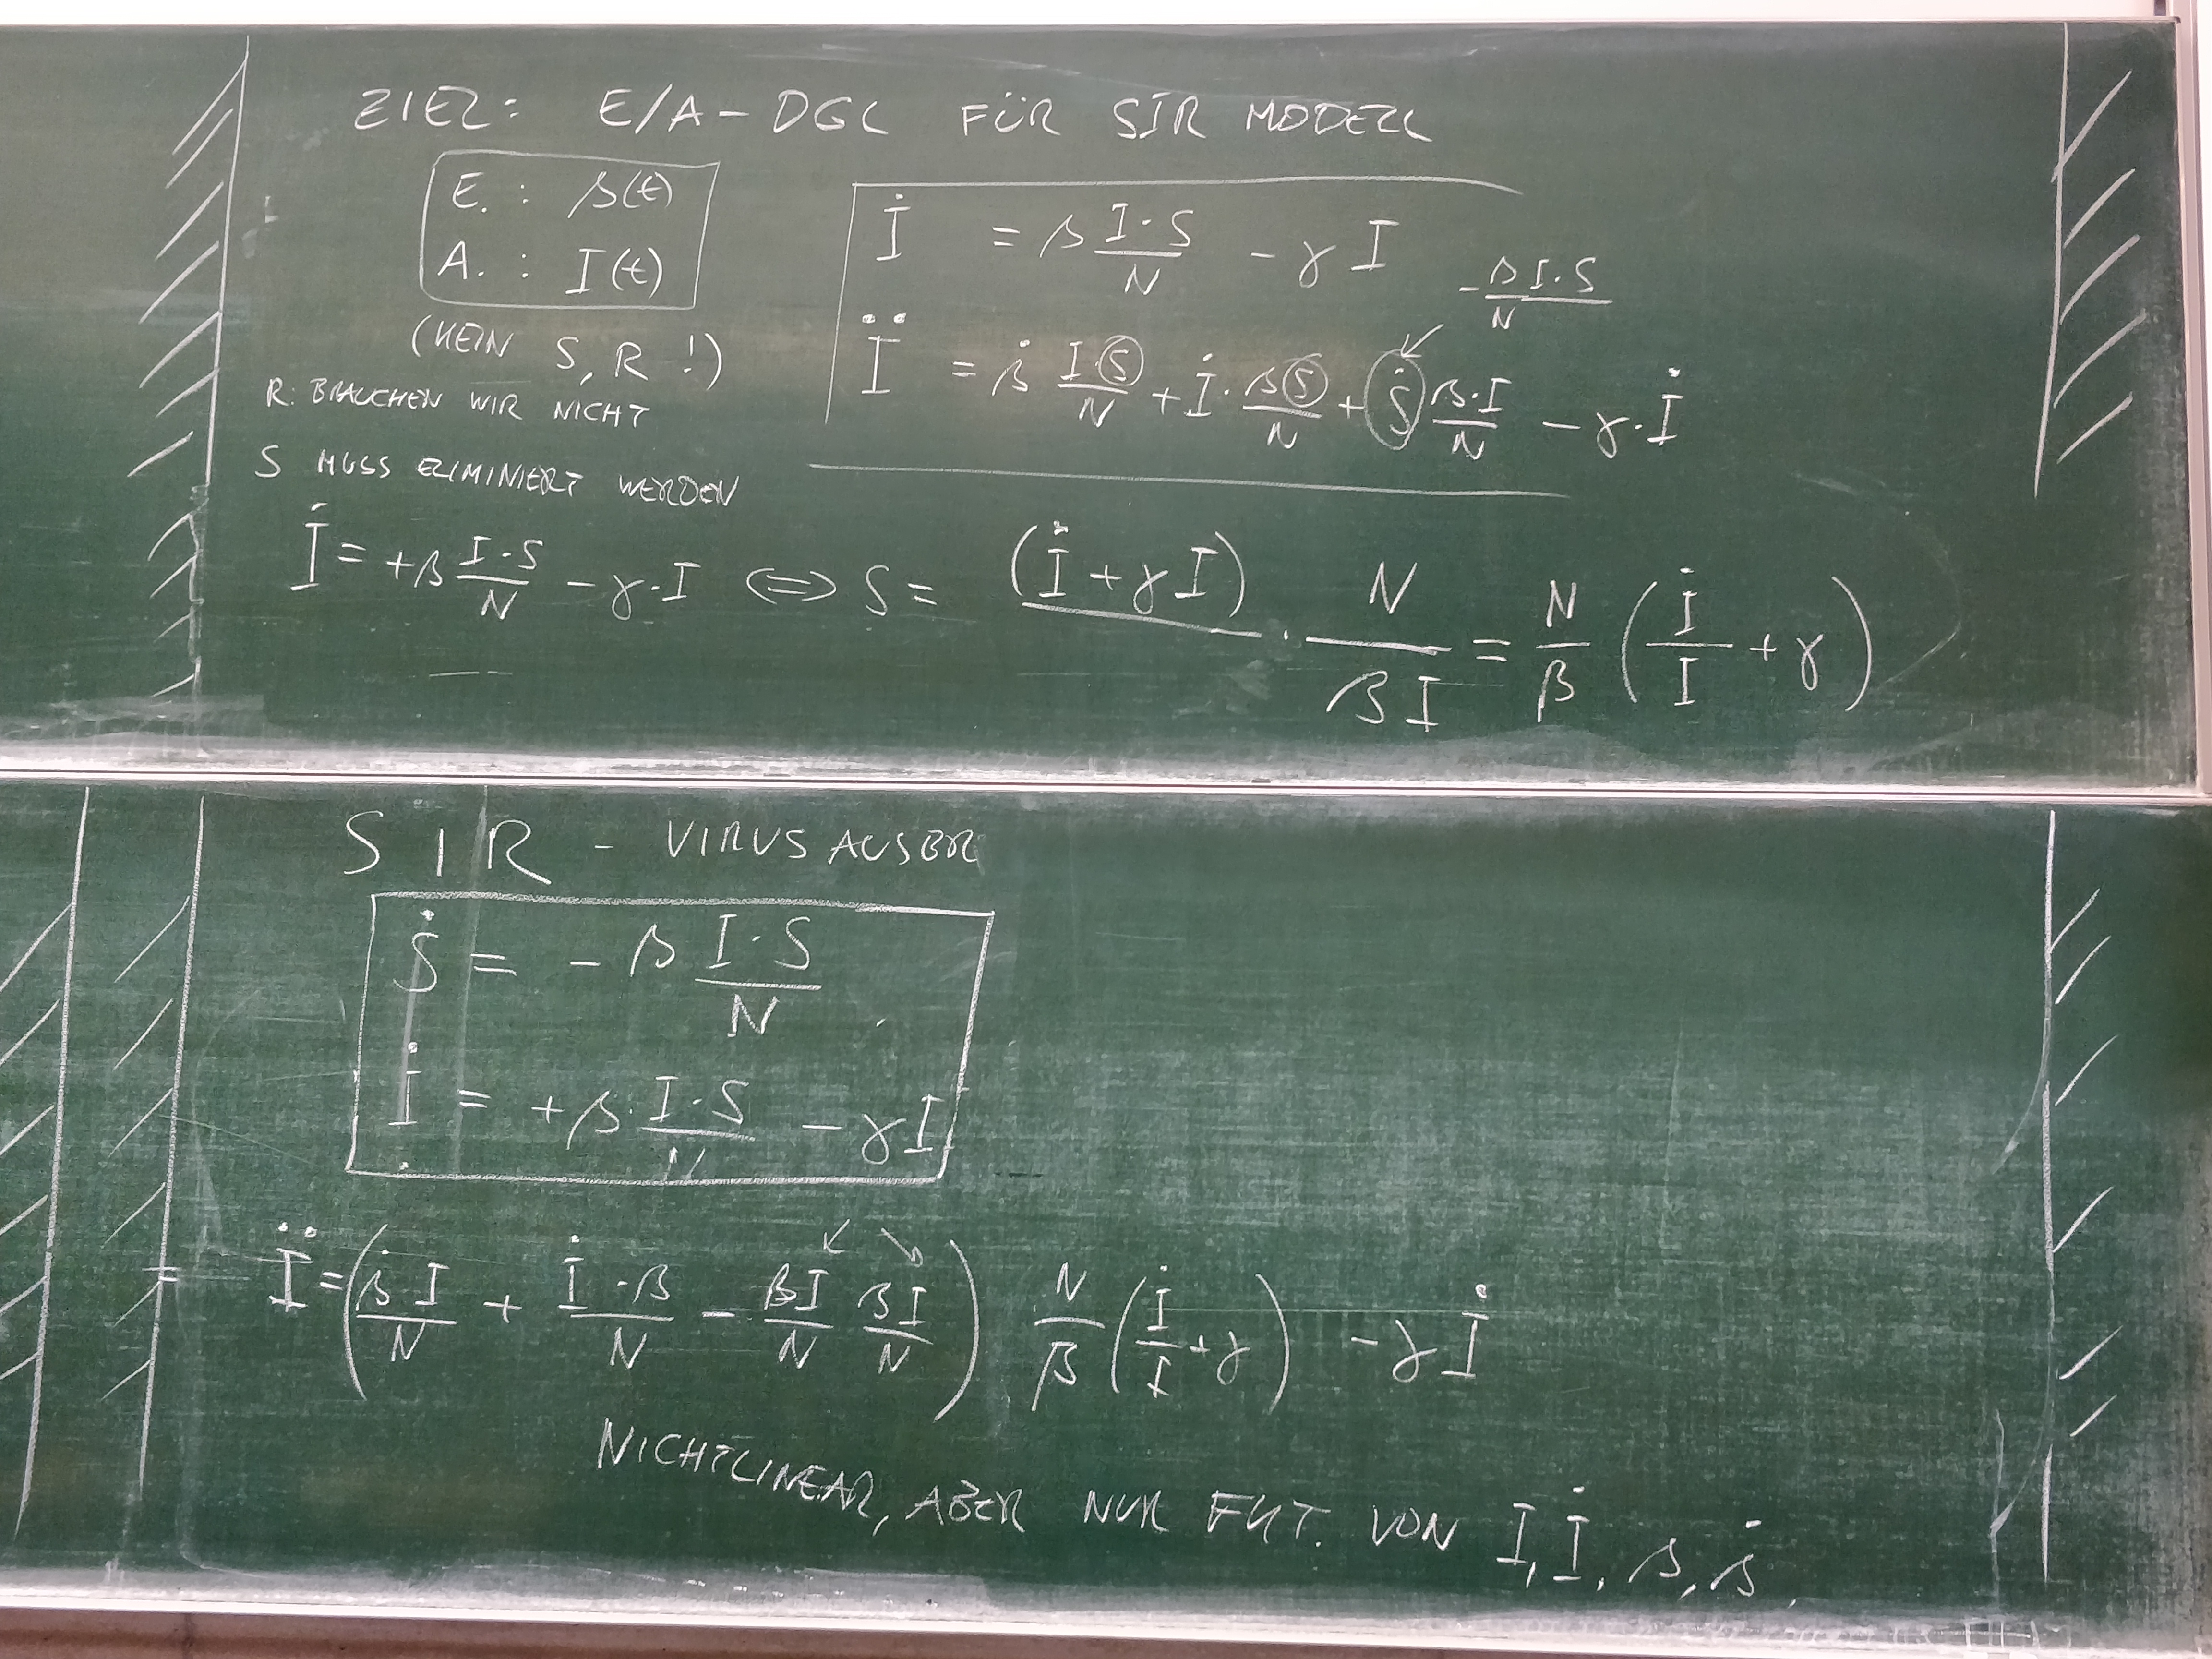 ZIEL: E/A-DGL FÜR SIR MODELL
E. : β(t)
A. : I(t)
(KEIN S, R !)
R: BRAUCHEN WIR NICHT
S MUSS ELIMINIERT WERDEN
İ = β (I·S)/N - γ I
-(β I·S)/N
Ï = β̇ (I·S)/N + İ · (β S)/N + Ṡ (β·I)/N - γ·İ
İ = +β (I·S)/N - γ·I ⇔ S = (İ + γI) · N/(βI) = N/β (İ/I + γ)
SIR - VIRUSAUSBR
Ṡ = - β (I·S)/N
İ = +β·(I·S)/N - γI
= Ï = ((β̇ I)/N + (İ·β)/N - (βI)/N (βI)/N) N/β (İ/I + γ) - γ İ
NICHTLINEAR, ABER NUR FKT. VON I, İ, β, β̇